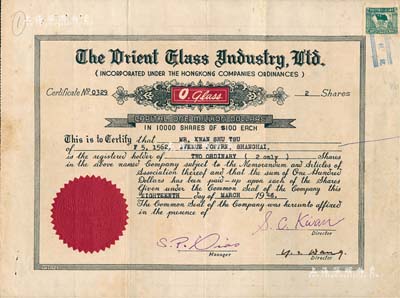 The Orient Glass Industry, Ltd.
(INCORPORATED UNDER THE HONGKONG COMPANIES ORDINANCES)
Certificate No. 0329
O Glass
2 Shares
CAPITAL ONE MILLION DOLLARS
IN 10000 SHARES OF $100 EACH
This is to Certify that MR. KWAN SHU TSU
of AVENUE JOFFRE, SHANGHAI,
is the registered holder of TWO ORDINARY ( 2 only ) Shares
in the above named Company subject to the Memorandum and Articles of
Association thereof and that the sum of One Hundred
Dollars has been paid-up upon each of the Shares
Given under the Common Seal of the Company this
EIGHTEENTH day of MARCH
The Common Seal of the Company was hereunto affixed
in the presence of
S. C. Kwan
Director
Manager
Director